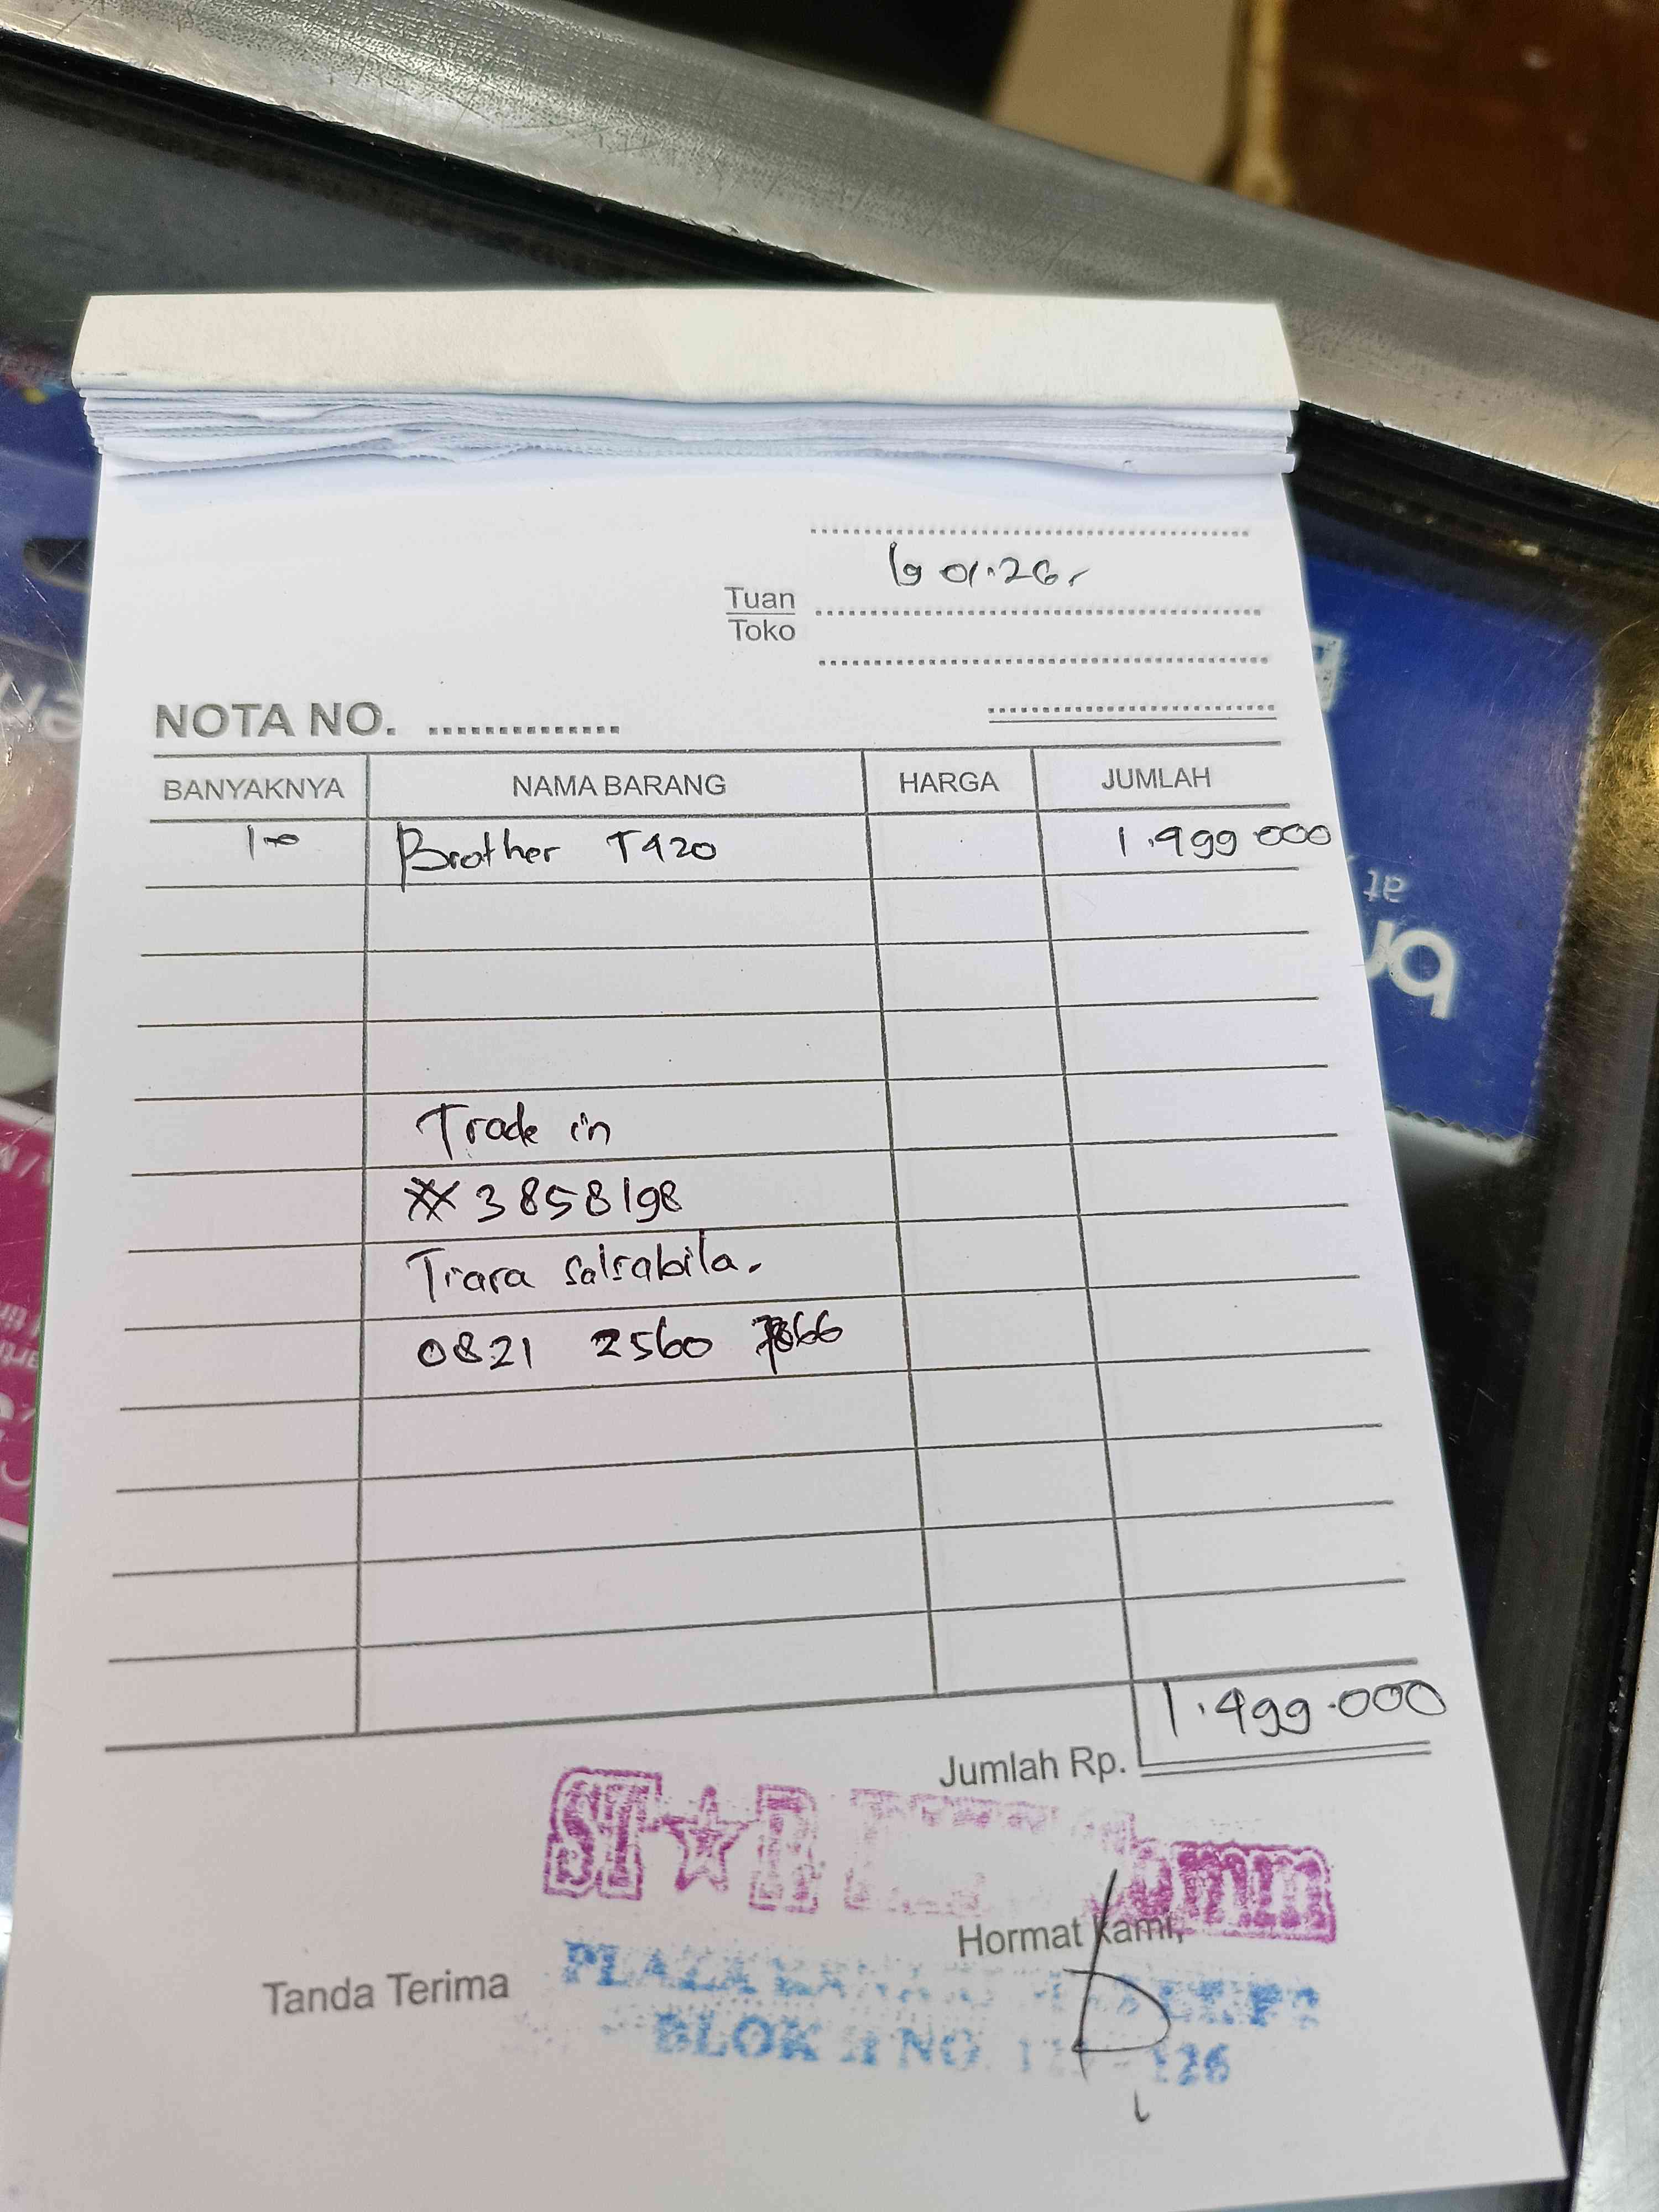 19 01.26,
Tuan
Toko
NOTA NO.
BANYAKNYA NAMA BARANG HARGA JUMLAH
1 Brother T420 1.499 000
Trade in
# 3858198
Tiara Salsabila.
0821 2560 7866
1.499.000
Jumlah Rp.
ST★R
Hormat kami,
Tanda Terima
PLAZA
BLOK NO. 126
at